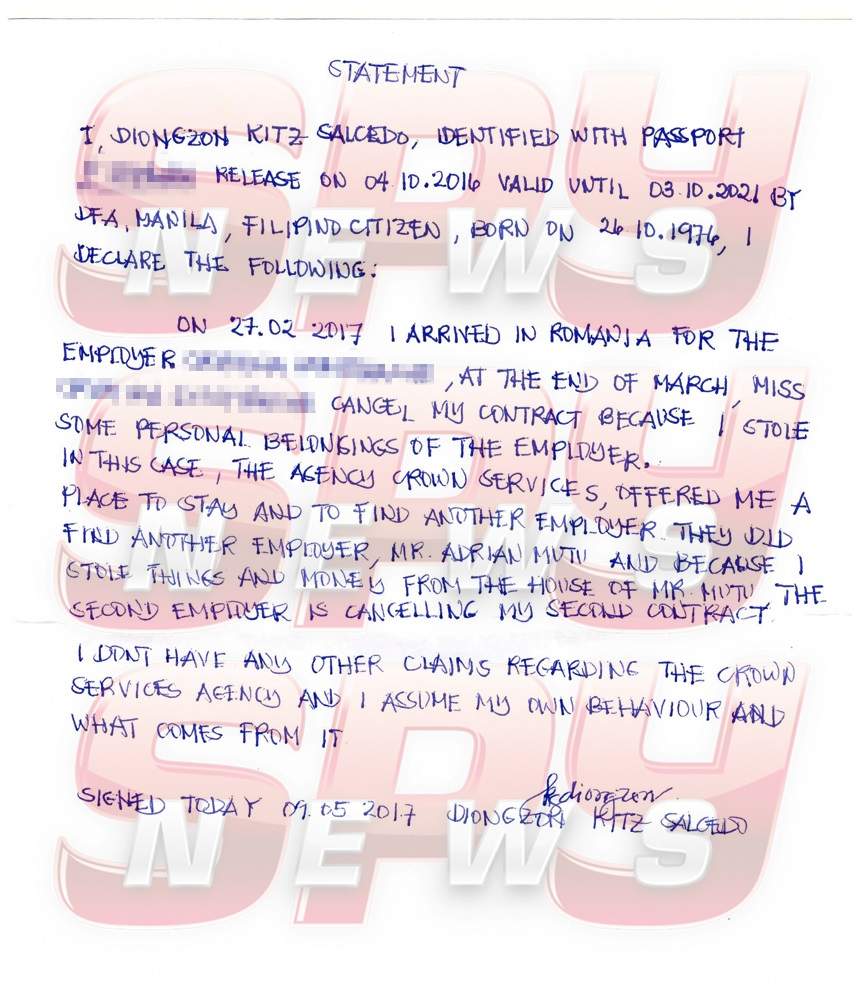 STATEMENT
I, DIONGZON KITZ SALCEDO, IDENTIFIED WITH PASSPORT
RELEASE ON 04.10.2016 VALID UNTIL 03.10.2021 BY
DFA, MANILA, FILIPINO CITIZEN, BORN ON 26 10.1976, I
DECLARE THE FOLLOWING:
ON 27.02 2017 I ARRIVED IN ROMANIA FOR THE
EMPLOYER , AT THE END OF MARCH, MISS
CANCEL MY CONTRACT BECAUSE I STOLE
SOME PERSONAL BELONGINGS OF THE EMPLOYER.
IN THIS CASE, THE AGENCY CROWN SERVICES, OFFERED ME A
PLACE TO STAY AND TO FIND ANOTHER EMPLOYER. THEY DID
FIND ANOTHER EMPLOYER, MR. ADRIAN MUTU AND BECAUSE I
STOLE THINGS AND MONEY FROM THE HOUSE OF MR. MUTU THE
SECOND EMPLOYER IS CANCELLING MY SECOND CONTRACT.
I DONT HAVE ANY OTHER CLAIMS REGARDING THE CROWN
SERVICES AGENCY AND I ASSUME MY OWN BEHAVIOUR AND
WHAT COMES FROM IT
SIGNED TODAY 09.05 2017 DIONGZON KITZ SALCEDO
kcdiongzon
SPY NEWS
SPY NEWS
SPY NEWS